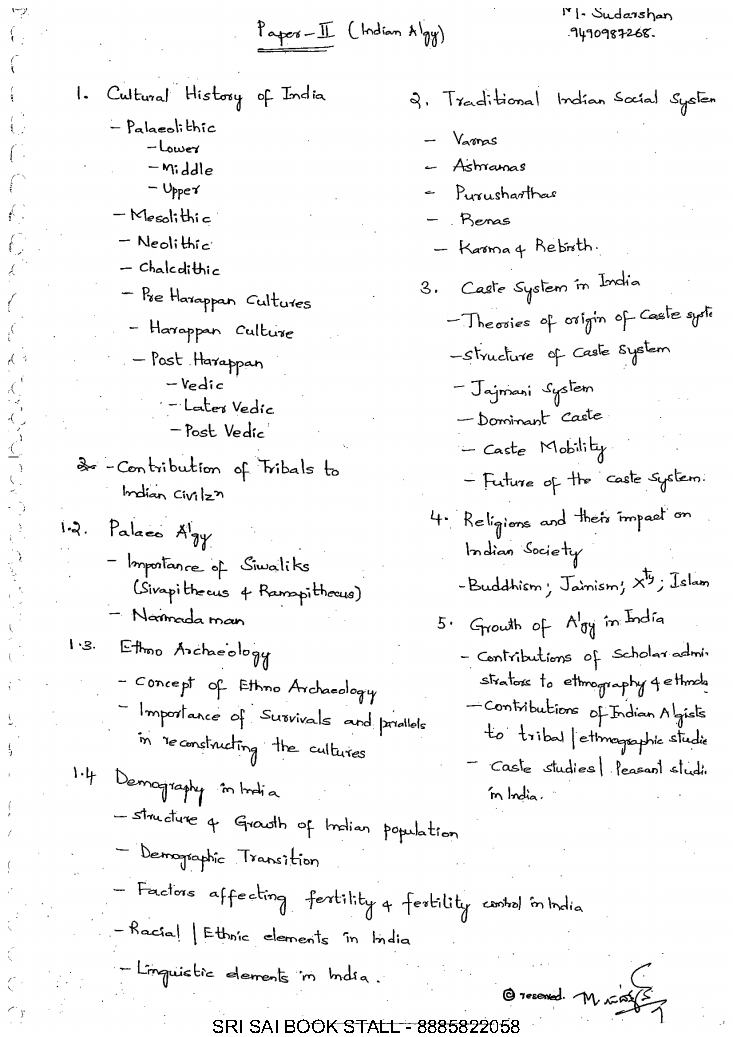 Paper-II (Indian Algy)
M. Sudarshan
9490987268.
1. Cultural History of India
- Palaeolithic
- Lower
- Middle
- Upper
- Mesolithic
- Neolithic
- Chalcolithic
- Pre Harappan Cultures
- Harappan Culture
- Post Harappan
- Vedic
- Later Vedic
- Post Vedic
- Contribution of Tribals to
Indian Civilzn
1.2. Palaeo A'gy
- Importance of Siwaliks
(Sivapithecus & Ramapithecus)
- Narmada man
1.3. Ethno Archaeology
- Concept of Ethno Archaeology
- Importance of Survivals and parallels
in reconstructing the cultures
1.4 Demography in India
- Structure & Growth of Indian population
- Demographic Transition
- Factors affecting fertility & fertility control in India
- Racial | Ethnic elements in India
- Linguistic elements in India.
2. Traditional Indian Social System
- Varnas
- Ashramas
- Purusharthas
- Renas
- Karma & Rebirth.
3. Caste System in India
- Theories of origin of Caste syste
- Structure of Caste System
- Jajmani System
- Dominant Caste
- Caste Mobility
- Future of the caste System.
4. Religions and their impact on
Indian Society
- Buddhism; Jainism; Xty; Islam
5. Growth of A'gy in India
- Contributions of Scholar admi-
strators to ethnography & ethnolo
- Contributions of Indian Algists
to tribal | ethnographic studie
- Caste studies | Peasant studi
in India.
© reserved.
SRI SAI BOOK STALL - 8885822058